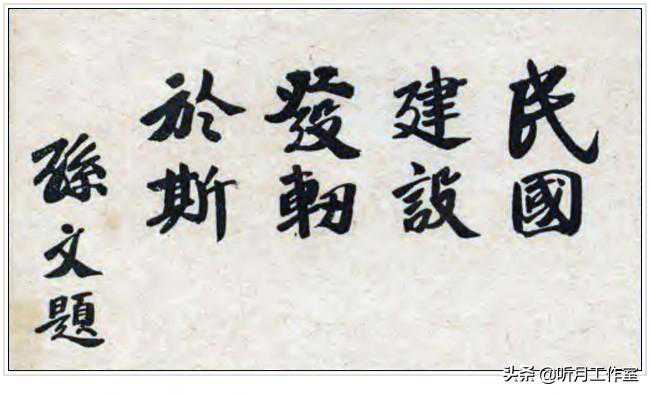 民國
建設
發軔
於斯
孫文題
头条 @听月工作室